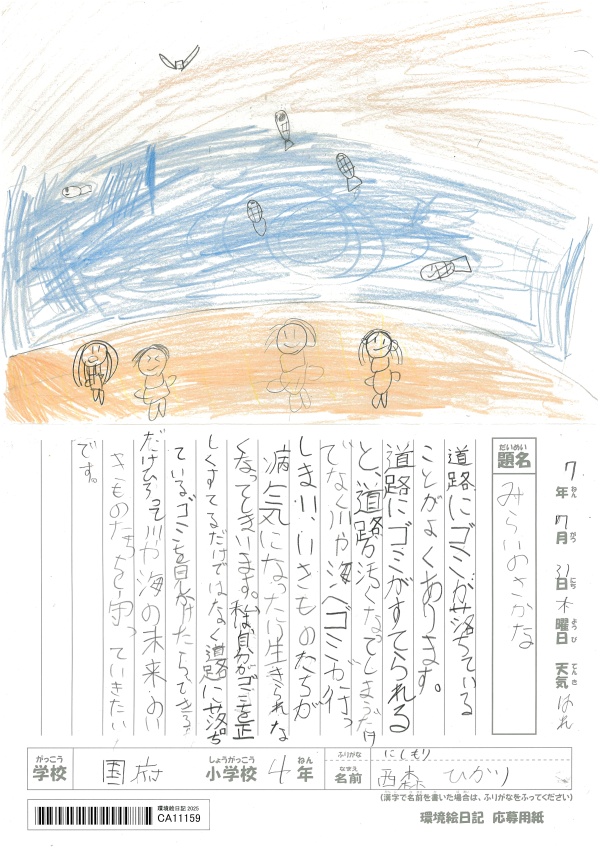 7年ねん7月がつ31日にち木曜日ようび 天気てんき はれ
だいめい
題名
みらいのさかな
道路にゴミが落ちている
ことがよくあります。
道路にゴミがすてられる
と、道路が汚くなってしまうだけ
でなく川や海へゴミが行っ
てしまい、いきものたちが
病気になったり生きられな
くなってしまいます。私は自分がゴミを正
しくすてるだけではなく道路に落ち
ているゴミを見つけたら、できるだ
だけひろって川や海の未来のい
きものたちを守っていきたい
です。
がっこう
学校 国府 小学校しょうがっこう 4年ねん
ふりがな にしもり
名前なまえ 西森 ひかり
(漢字で名前を書いた場合は、ふりがなをふってください)
環境絵日記 2025
CA11159
環境絵日記 応募用紙